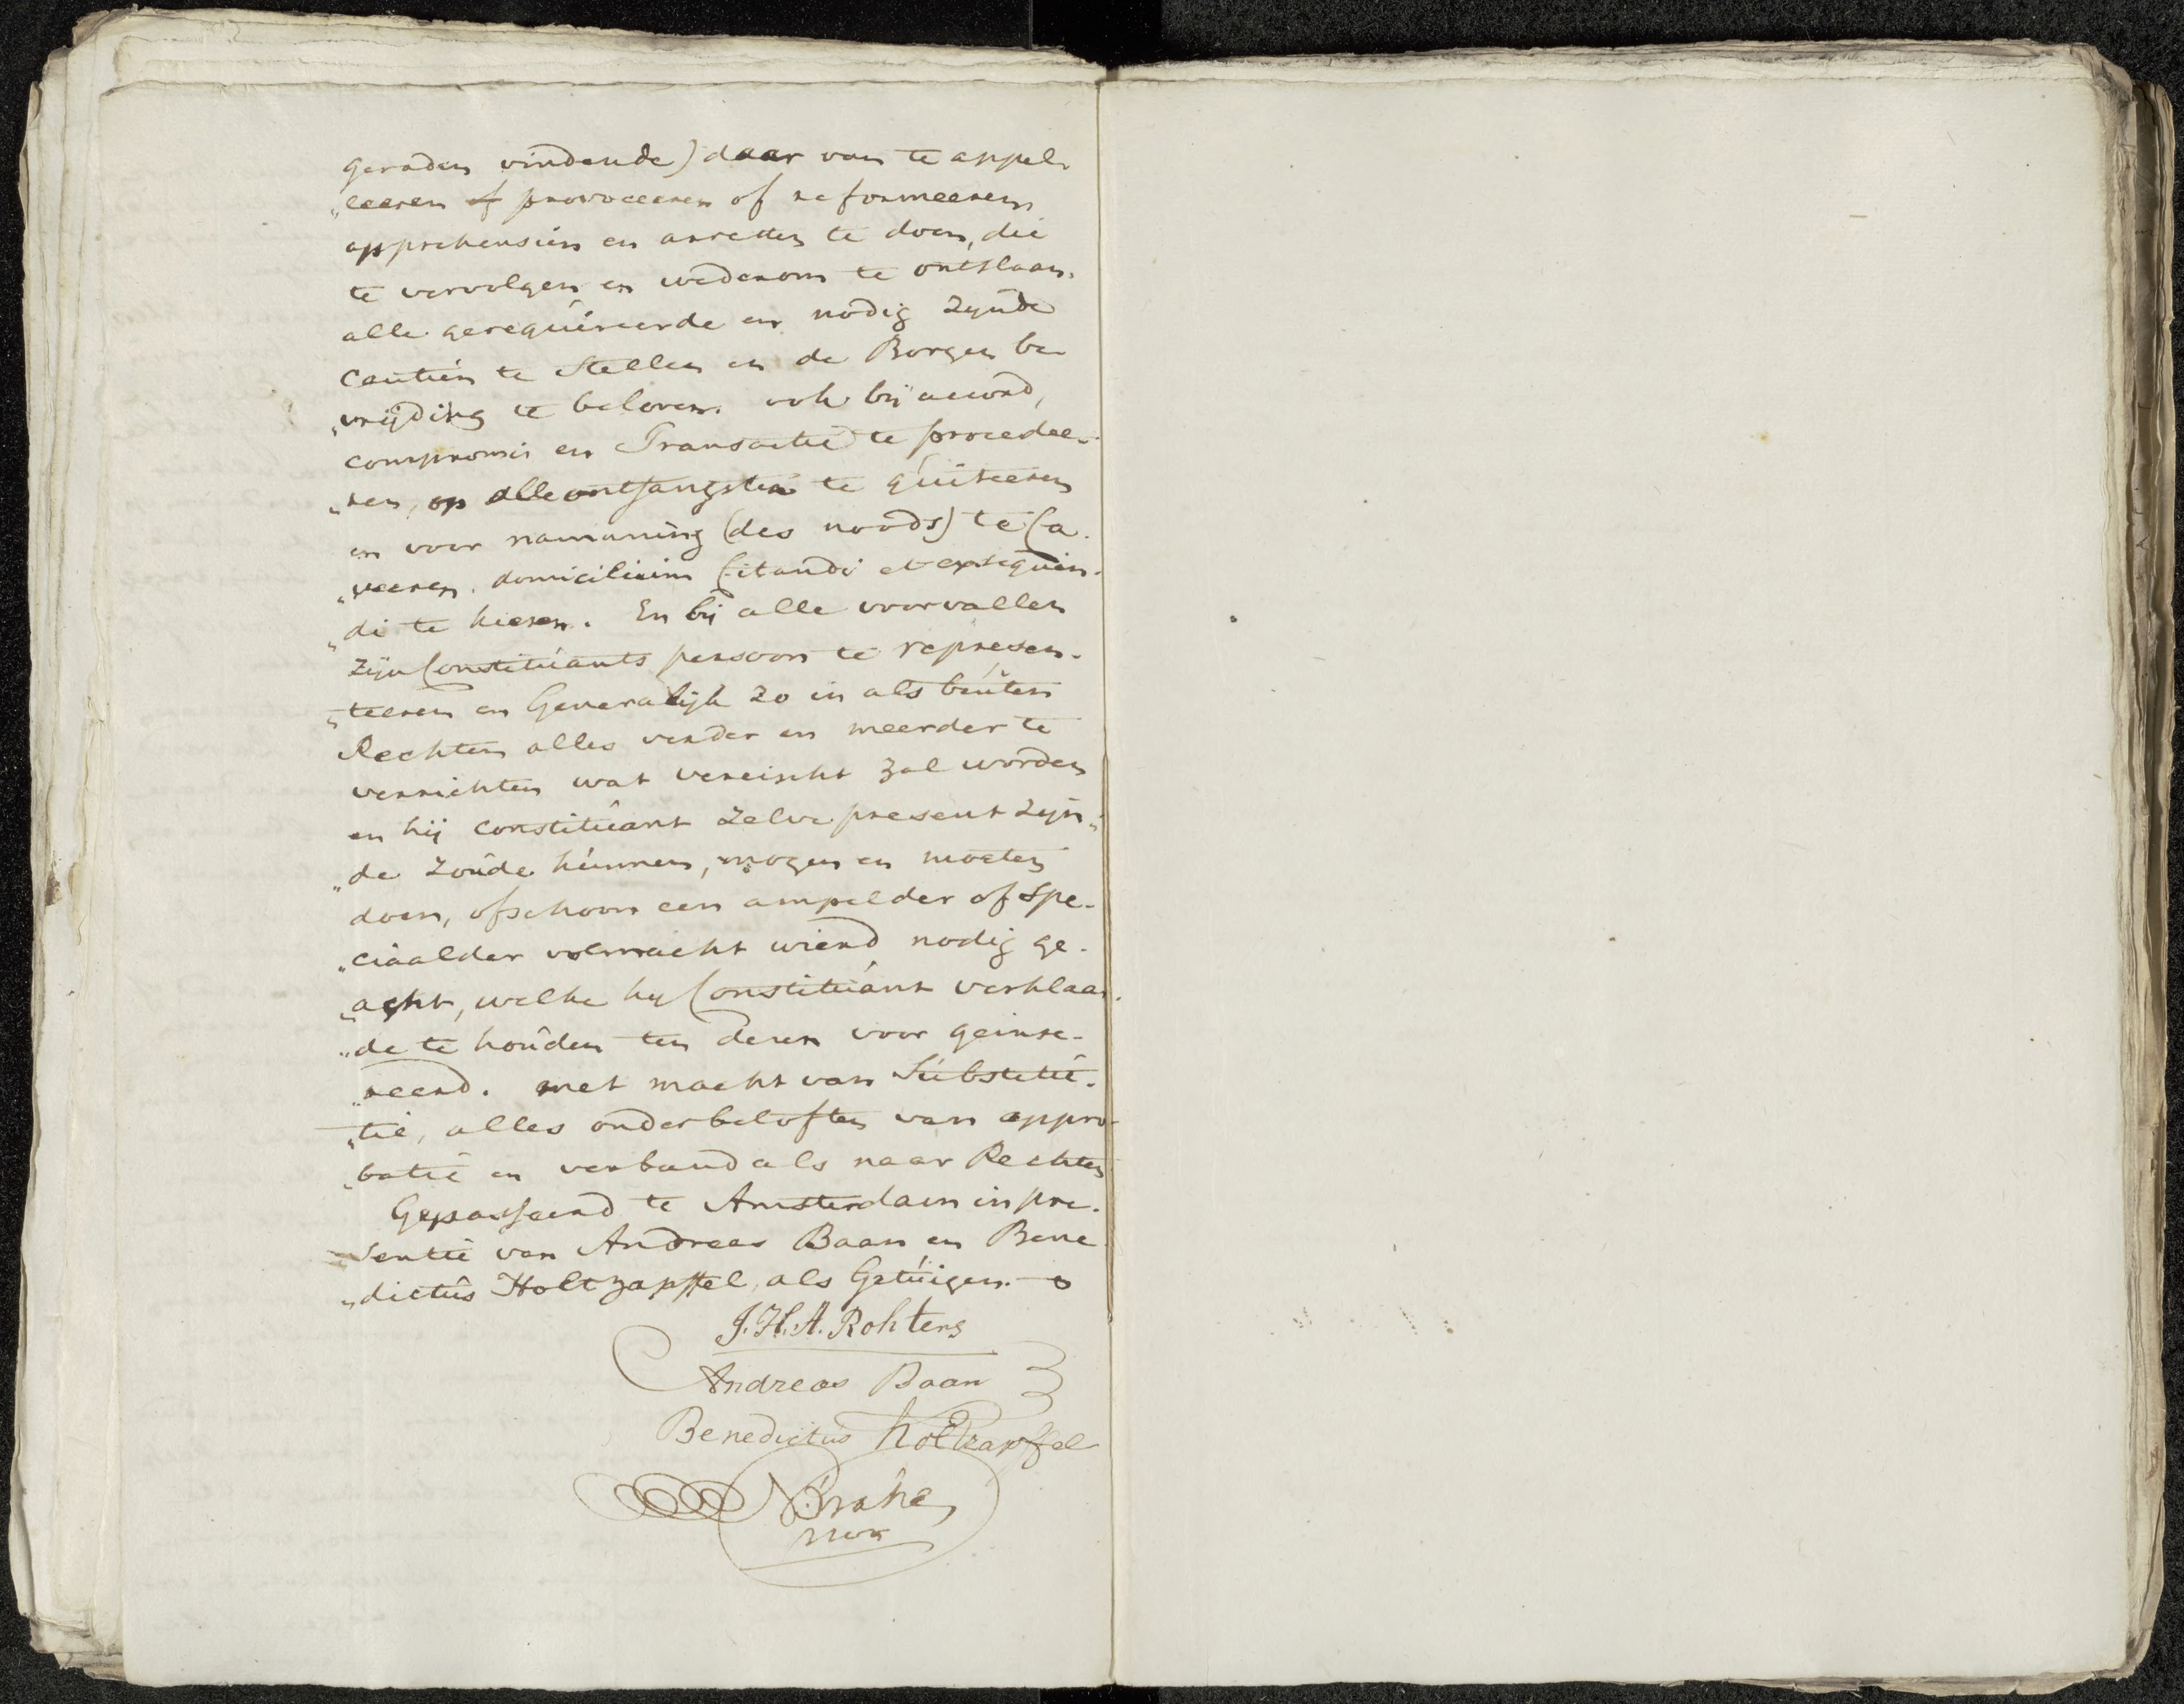 geraden vindende) daar van te appel-
„leeren of provoceeren of reformeeren
apprehensien en arretten te doen, die
te vervolgen en wederom te ontslaan.
alle gerequireerde en nodig zynde
Cautien te Stellen en de Borgen be
„vrijding te beloven. ook bij accord,
compromis en Transactie te procedee-
„ren, op alle ontfangsten te quiteeren
en voor namaning (des noods) te Ca-
„veeren, domicilium Citandi et exsequen-
„di te kiesen. En bij alle voorvallen
zijn Constituants persoon te represen-
„teeren en Generalijk zo in als buiten
Rechten alles verder en meerder te
verrichten wat vereischt zal worden
en hij constituant zelve present zijn„
„de zoude kunnen, mogen en moeten
doen, ofschoon een ampelder of spe-
„ciaalder volmacht wierd nodig ge-
„acht, welke hy Constituant verklaar-
„de te houden ten deren voor geinse-
„reerd. met macht van Substitu-
„tie, alles onder beloften van appro-
„batie en verband als naar Rechten
Gepasseerd te Amsterdam in pre-
„sentie van Andreas Baan en Bene
„dictus Holtzapffel als Getuigen.
J. H. A. Rohters
Andreas Baan
Benedictus holtzapffel
Brahe
not